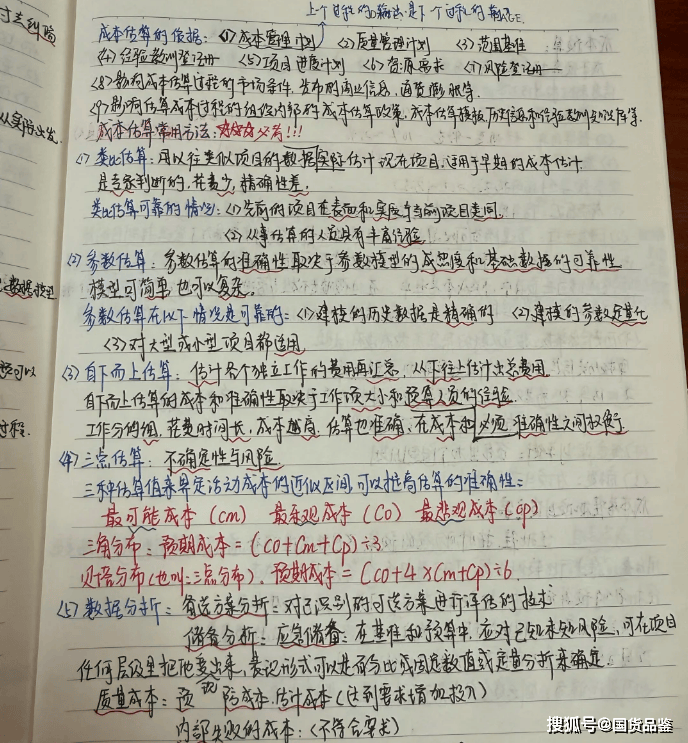 上个过程的输出是下个过程的输入
成本估算的依据: (1)成本管理计划 (2)质量管理计划 (3)范围基准
(4)经验教训登记册 (5)项目进度计划 (6)资源需求 (7)风险登记册
(8)影响成本估算过程的市场条件, 发布的商业信息, 通货膨胀等
(9)影响估算成本过程的组织内部的成本估算政策, 成本估算模板, 历史信息和经验教训知识库等.
成本估算常用方法: 必考!!!
(1)类比估算: 用以往类似项目的数据实际估计现在项目, 适用于早期的成本估计
是专家判断的, 花费少, 精确性差
类比估算可靠的情况: (1)先前的项目在表面和实质与当前项目类同
(2)从事估算的人员具有丰富经验
(2)参数估算: 参数估算的准确性取决于参数模型的成熟度和基础数据的可靠性
模型可简单也可以复杂.
参数估算在以下情况是可靠的: (1)建模的历史数据是精确的 (2)建模的参数定量化
(3)对大型或小型项目都适用
(3)自下而上估算: 估计各个独立工作的费用再汇总, 从下往上估计出总费用
自下而上估算的成本和准确性取决于工作项大小和预算人员的经验
工作分的细, 花费时间长, 成本越高, 估算也准确, 在成本和必须准确性之间权衡
(4)三点估算: 不确定性与风险
三种估算值来界定活动成本的近似区间, 可以提高估算的准确性:
最可能成本 (cm) 最乐观成本 (Co) 最悲观成本 (Cp)
三角分布: 预期成本 = (Co+Cm+Cp)÷3
贝塔分布(也叫三点分布), 预期成本 = (Co+4×Cm+Cp)÷6
(5)数据分析: 备选方案分析: 对已识别的可选方案进行评估的技术
储备分析: 应急储备: 在基准和预算中, 应对已知未知风险, 可在项目
任何层级里把他表出来, 表现形式可以是百分比或固定数值或定量分析来确定
质量成本: 预防成本, 估计成本 (达到要求增加投入)
内部失败的成本: (不符合要求)
寸去纠验
从实际出发
数据模型
可以
过程.
搜狐号@国货品鉴